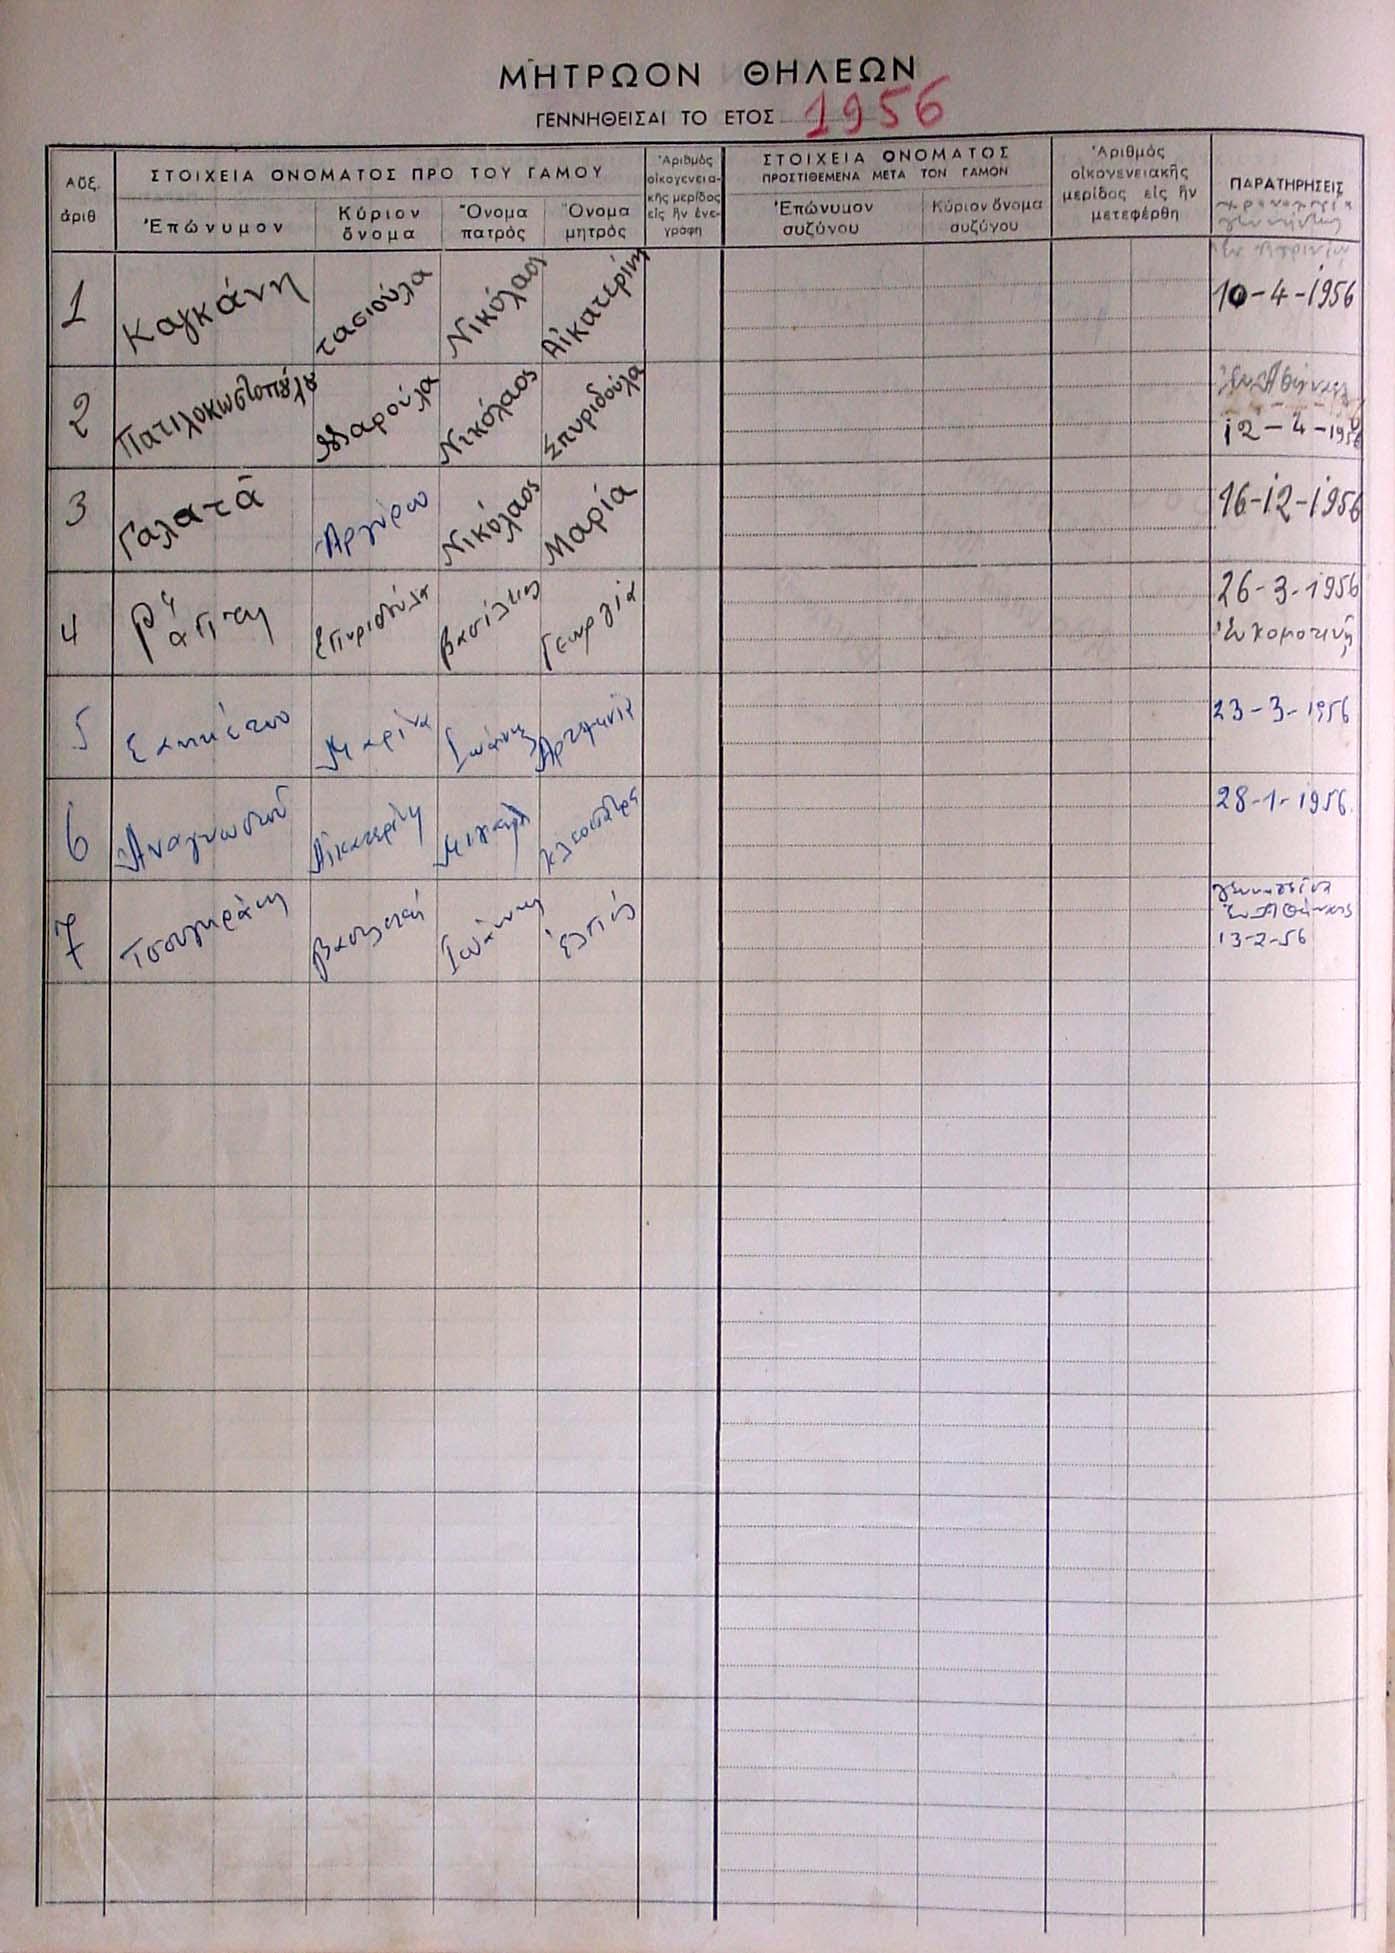 ΜΗΤΡΩΟΝ ΘΗΛΕΩΝ
ΓΕΝΝΗΘΕΙΣΑΙ ΤΟ ΕΤΟΣ 1956
Αὔξ. ἀριθ
ΣΤΟΙΧΕΙΑ ΟΝΟΜΑΤΟΣ ΠΡΟ ΤΟΥ ΓΑΜΟΥ
Ἐπώνυμον
Κύριον ὄνομα
Ὄνομα πατρὸς
Ὄνομα μητρὸς
Ἀριθμὸς οἰκογενεια-κῆς μερίδος εἰς ἣν ἐνε-γράφη
ΣΤΟΙΧΕΙΑ ΟΝΟΜΑΤΟΣ
ΠΡΟΣΤΙΘΕΜΕΝΑ ΜΕΤΑ ΤΟΝ ΓΑΜΟΝ
Ἐπώνυμον συζύγου
Κύριον ὄνομα συζύγου
Ἀριθμὸς οἰκογενειακῆς μερίδος εἰς ἣν μετεφέρθη
ΠΑΡΑΤΗΡΗΣΕΙΣ
χρονολογία
γεννήσεως
1 Καγκάνη τασιούλα Νικόλαος Αἰκατερίνη 10-4-1956
2 Μαρούλα Νικόλαος Σπυριδούλα 12-4-1956
3 Γαλατᾶ Ἀργύρω Νικόλαος Μαρία 16-12-1956
4 Ράπτη Σπυριδούλα Βασίλειος Γεωργία 26-3-1956
Ἐν Κομοτινῇ
5 Μαρίνα Ἰωάννης 23-3-1956
6 Ἀναγνωστοῦ Αἰκατερίνη Μιχαὴλ Κλεοπάτρα 28-1-1956.
7 Βασιλική Ἰωάννης Ἐλπίς γεννηθεῖσα
Ἐν Ἀθήναις
13-2-56